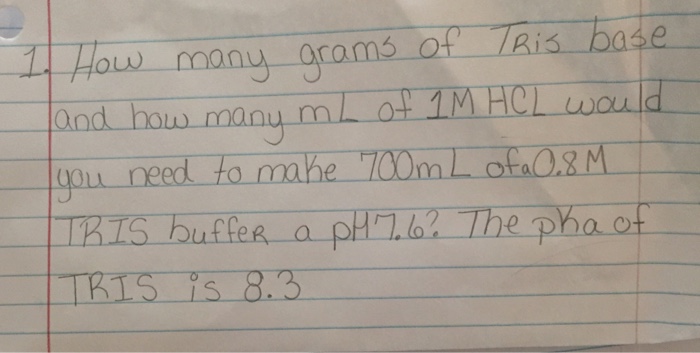 1. How many grams of TRis base
and how many mL of 1M HCL would
you need to make 700mL of a 0.8M
TRIS buffeR a pH 7.6? The pka of
TRIS is 8.3